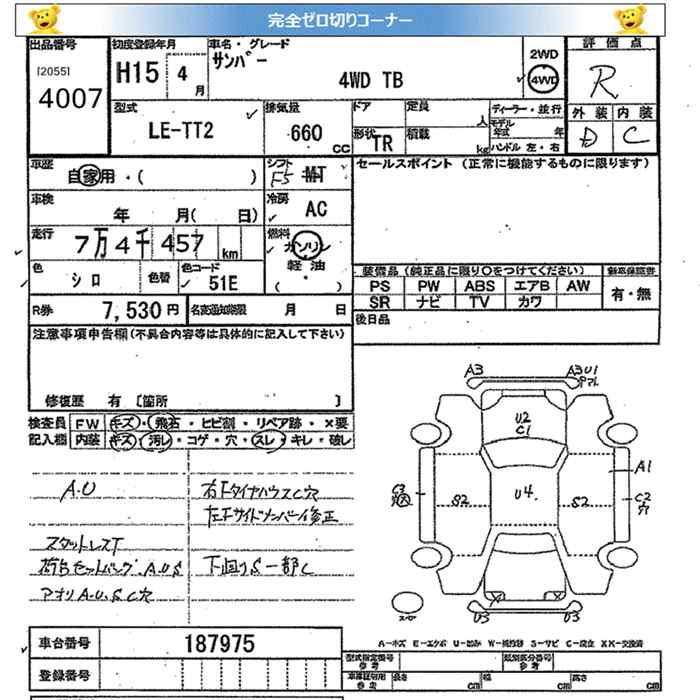 完全ゼロ切りコーナー
出品番号
[2055]
4007
初度登録年月
H15 4月
車名・グレード
サンバー
4WD TB
2WD
4WD
評価点
R
型式
LE-TT2
排気量
660 CC
ドア
定員 人
形状
TR
積載 kg
ディーラー・並行
モデル年式 年
ハンドル 左・右
外装 内装
D C
車歴
自家用・( )
シフト
F5 MT
セールスポイント (正常に機能するものに限ります)
車検
年 月( 日)
冷房
AC
走行
7万4千457 km
燃料
ガソリン
軽油
( )
色
シロ
色替
色コード
51E
装備品 (純正品に限り○をつけてください)
PS PW ABS エアB AW
SR ナビ TV カワ
新車保証書
有・無
R券 7,530円
名変通知期限 月 日
後日品
注意事項申告欄(不具合内容等は具体的に記入して下さい)
修復歴 有 [箇所 ]
検査員記入欄
FW キズ・飛石・ヒビ割・リペア跡・×要
内装 キズ・汚レ・コゲ・穴・スレ・キレ・破レ
A.U
右FタイヤハウスC穴
左Fサイドメンバー修正
スタットレスT
下回りS一部C
アオリA.U.S C穴
A3
A3U1
U2
C1
A1
C3
C2
穴
S2
U4
S2
U3
U3
A-キズ E-エクボ U-凹み W-補修跡 S-サビ C-腐食 XX-交換済
車台番号 187975
登録番号
型式指定番号 参考
類別区分番号 参考
車庫証明用 参考
長さ cm
幅 cm
高さ cm